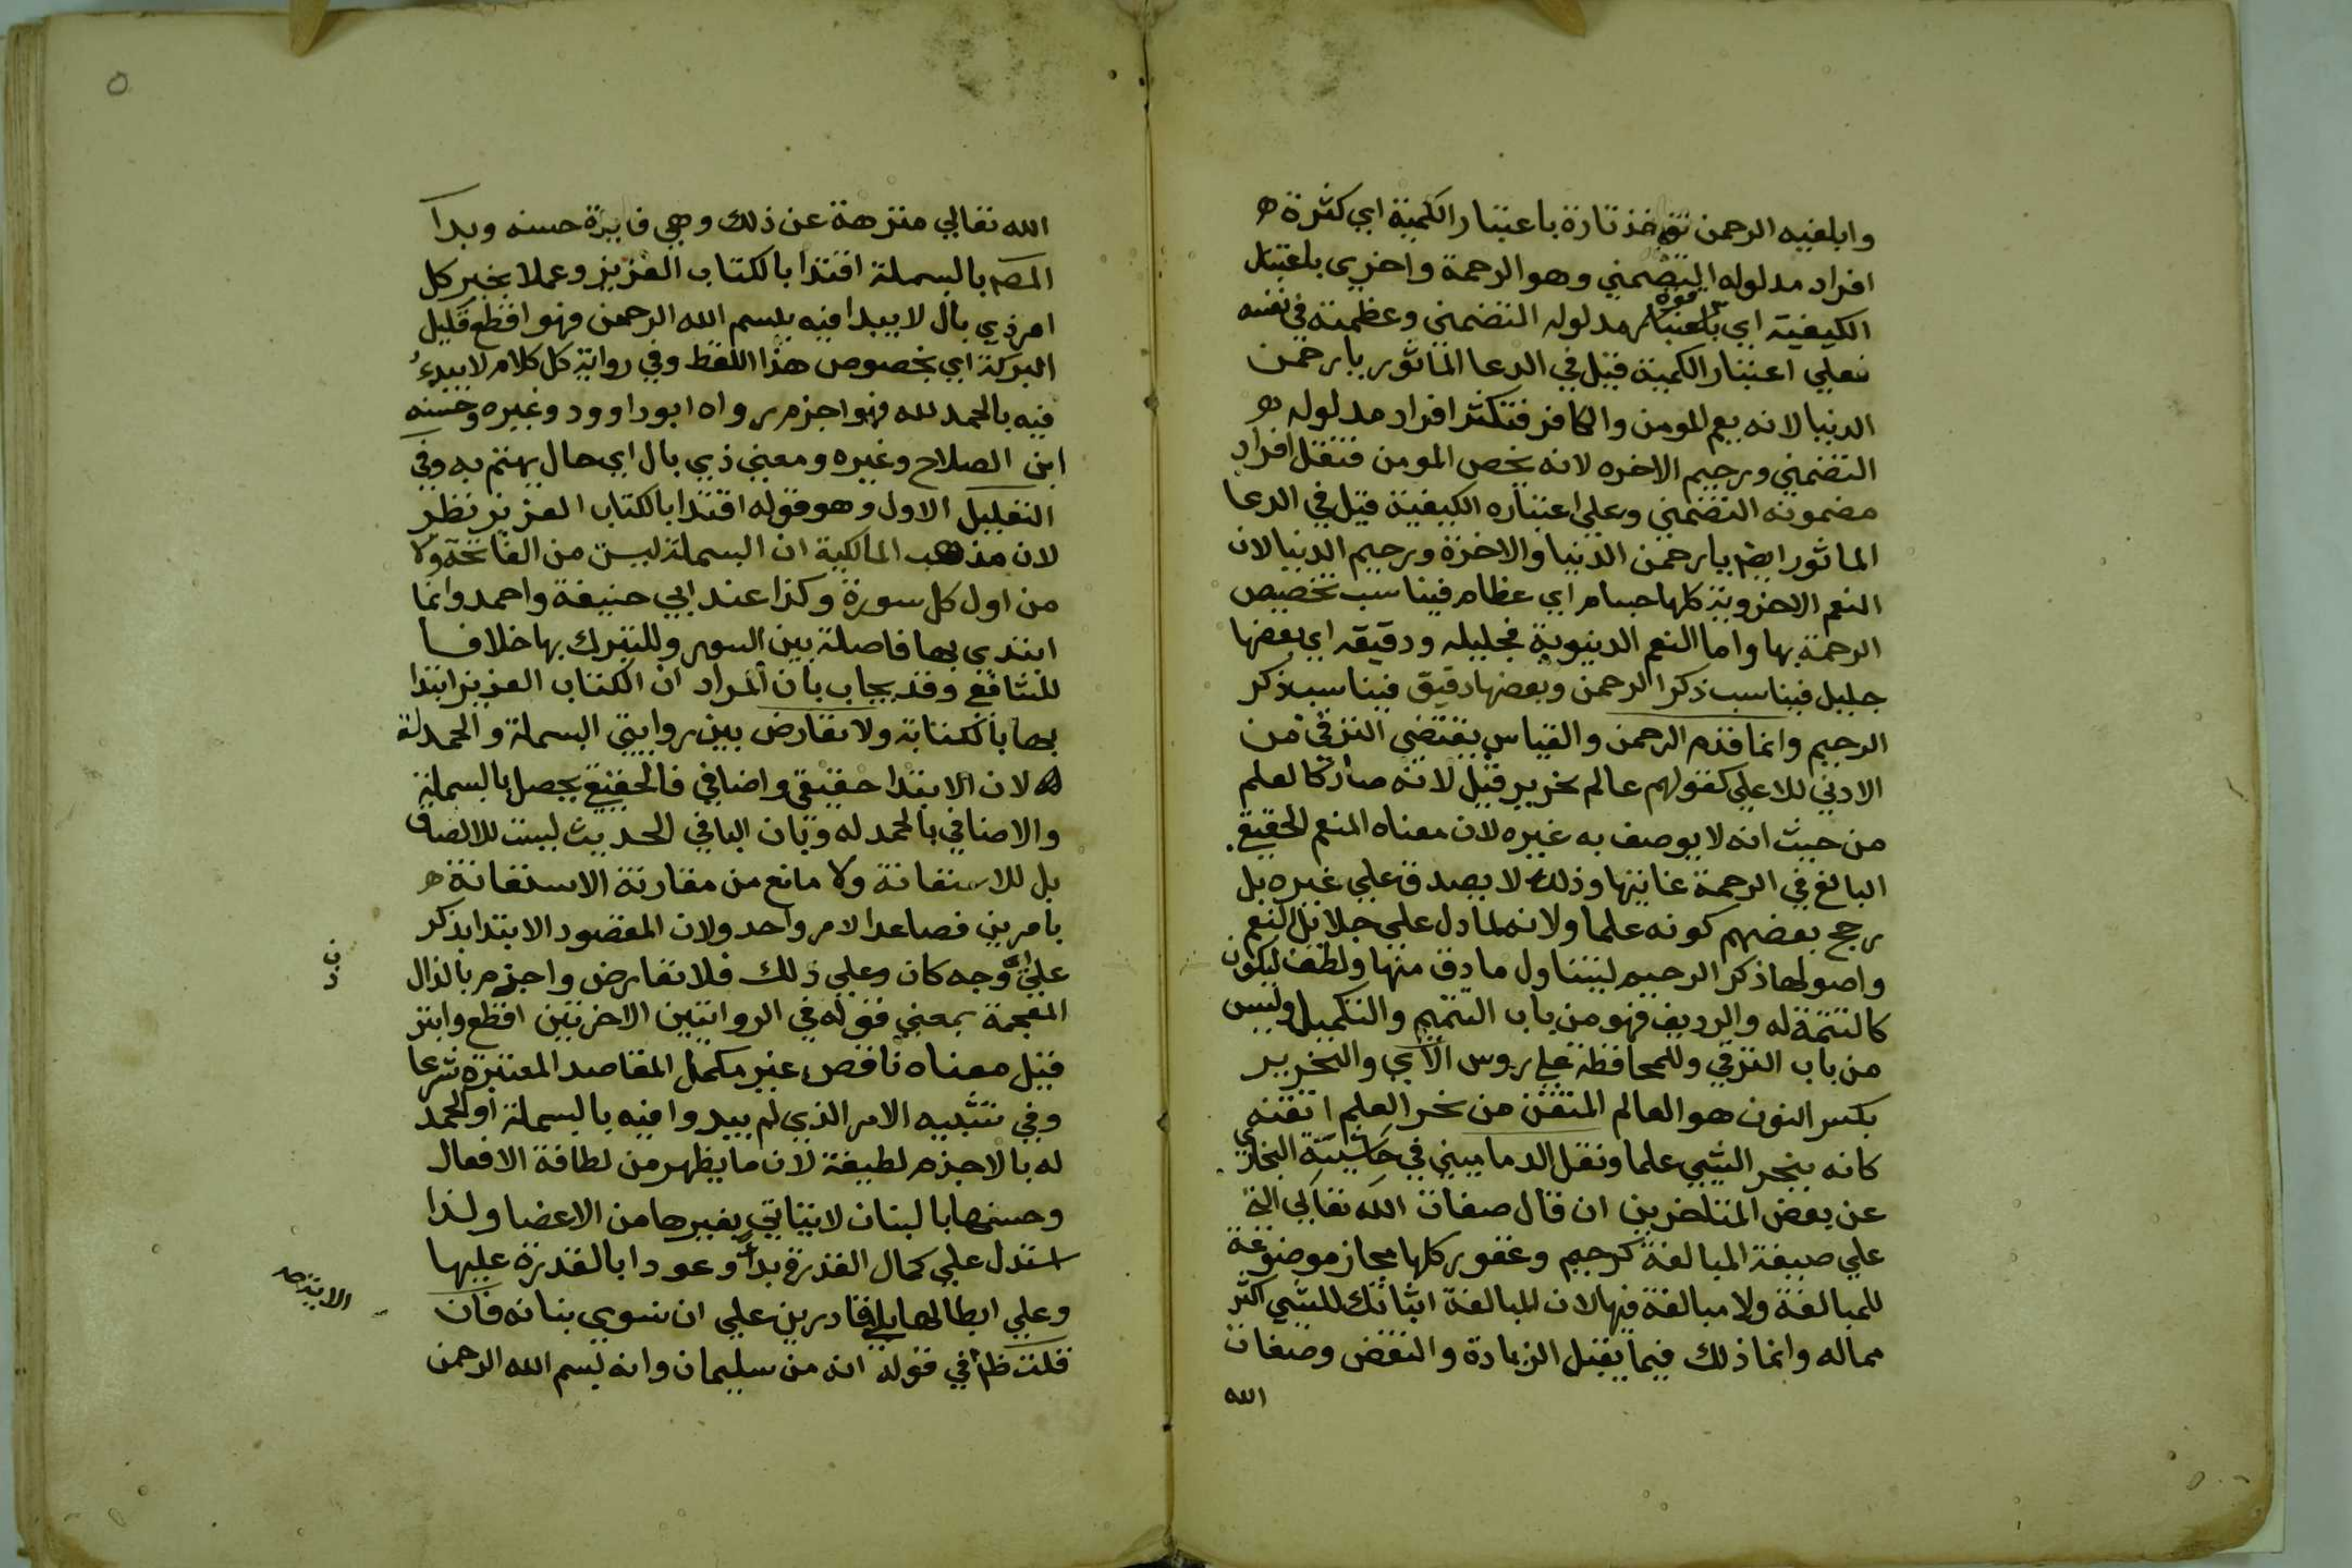 وابلغيه الرحمن تؤخذ تارة باعتبار الكمية اي كثرة ه
افراد مدلوله التضمني وهو الرحمة واخري باعتبار
الكيفية اي باعتبار قوة مدلوله التضمني وعظمته في نفسه
فعلي اعتبار الكمية قيل في الدعا الماثور يا رحمن
الدنيا لانه يعم المومن والكافر فتكثر افراد مدلوله ه
التضمني ورحيم الاخره لانه يخص المومن فتقل افراد
مضمونه التضمني وعلي اعتباره الكيفية قيل في الدعا
الماثور ايضا يا رحمن الدنيا والاخرة ورحيم الدنيا لان
النعم الاخروية كلها جسام اي عظام فيناسب تخصيص
الرحمة بها واما النعم الدنيوية فجليله ودقيقه اي بعضها
جليل فيناسب ذكر الرحمن وبعضها دقيق فيناسب ذكر
الرحيم وانما قدم الرحمن والقياس يقتضي الترقي من
الادني للاعلي كقولهم عالم نحرير قيل لانه صار كالعلم
من حيث انه لا يوصف به غيره لان معناه المنعم الحقيقي
البالغ في الرحمة غايتها وذلك لا يصدق علي غيره بل
رجح بعضهم كونه علما ولانه لما دل علي جلايل النعم
واصولها ذكر الرحيم ليتناول ما دق منها ولطف ليكون
كالتتمة له والرديف فهو من باب التتميم والتكميل وليس
من باب الترقي وللمحافظة علي روس الاي والنحرير
بكسر النون هو العالم المتقن من نحر العلم اتقنه
كانه ينحر الشي علما ونقل الدماميني في حاشية البخاري
عن بعض المتاخرين ان قال صفات الله تعالي التي
علي صيغة المبالغة كرحيم وغفور كلها مجاز موضوعة
للمبالغة ولا مبالغة فيها لان المبالغة اثباتك للشي اكثر
مما له وانما ذلك فيما يقبل الزيادة والنقص وصفات
الله
٥
الله تعالي منزهة عن ذلك وهي فايدة حسنه وبدا
المصـ بالبسملة اقتدا بالكتاب العزيز وعملا بخبر كل
امر ذي بال لا يبدا فيه ببسم الله الرحمن فهو اقطع قليل
البركة اي بخصوص هذا اللفظ وفي رواية كل كلام لا يبدء
فيه بالحمد لله فهو اجزم رواه ابو داوود وغيره وحسنه
ابن الصلاح وغيره ومعني ذي بال اي حال يهتم به وفي
التعليل الاول وهو قوله اقتدا بالكتاب العزيز نظر
لان مذهب المالكية ان البسملة ليست من الفاتحة ولا
من اول كل سورة وكذا عند ابي حنيفة واحمد وانما
ابتدي بها فاصلة بين السور وللتبرك بها خلافا
للشافعي وقد يجاب بان المراد ان الكتاب العزيز ابتدا
بها بالكتابة ولا تعارض بين روايتي البسملة والحمدلة
لان الابتدا حقيقي واضافي فالحقيقي يحصل بالبسملة
والاضافي بالحمد له وبان البا في الحديث ليست للالصاق
بل للاستعانة ولا مانع من مقارنة الاستعانة ه
بامرين فصاعدا لامر واحد ولان المقصود الابتدا بذكر
علي اي وجه كان وعلي ذلك فلا تعارض واجزم بالذال
المعجمة بمعني قوله في الروايتين الاخريتين اقطع وابتر
قيل معناه ناقص غير مكمل المقاصد المعتبرة شرعا
وفي تشبيه الامر الذي لم يبدوا فيه بالبسملة او الحمد
له بالاجزم لطيفة لان ما يظهر من لطافة الافعال
وحسنها بالبنان لا يتاتي بغيرها من الاعضا ولذا
استدل علي كمال القدرة بدأ وعودا بالقدرة عليها
وعلي ابطالها بلي قادرين علي ان نسوي بنانه فان
الاية صح
قلت ظم في قوله انه من سليمان وانه بسم الله الرحمن